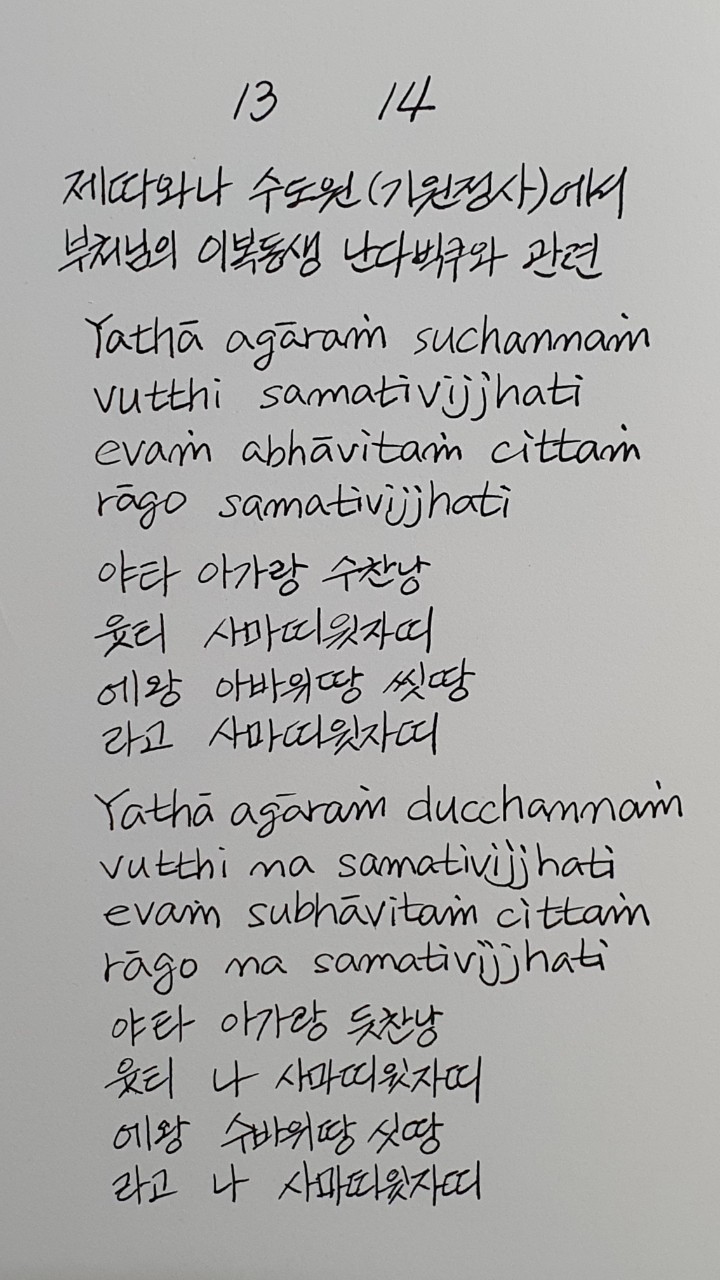 13 14
제따와나 수도원(기원정사)에서
부처님의 이복동생 난다빅쿠와 관련
Yathā agāraṁ suchannaṁ
vutthi samativijjhati
evaṁ abhāvitaṁ cittaṁ
rāgo samativijjhati
야타 아가랑 수찬낭
웃티 사마띠윗자띠
에왕 아바위땅 씻땅
라고 사마띠윗자띠
Yathā agāraṁ ducchannaṁ
vutthi na samativijjhati
evaṁ subhāvitaṁ cittaṁ
rāgo na samativijjhati
야타 아가랑 듯찬낭
웃티 나 사마띠윗자띠
에왕 수바위땅 싯땅
라고 나 사마띠윗자띠